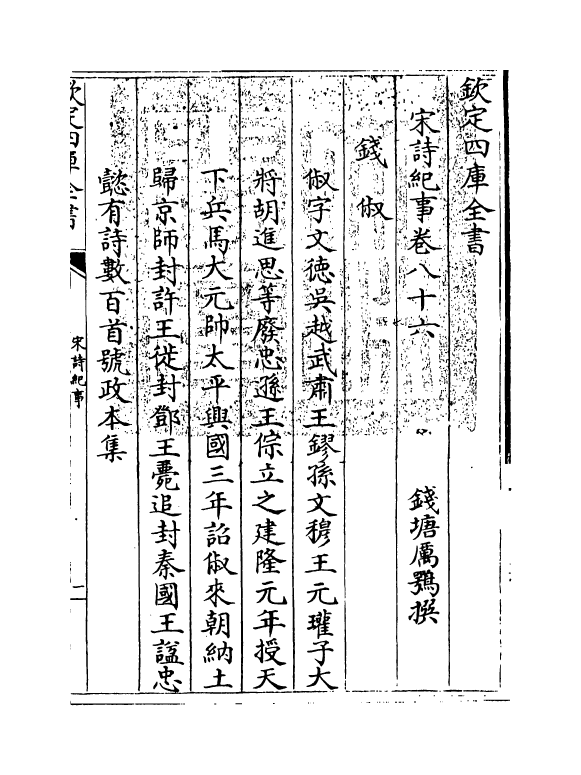 欽定四庫全書
宋詩紀事卷八十六
錢塘厲鶚撰
錢俶
俶字文徳吳越武肅王鏐孫文穆王元瓘子大
將胡進思等廢忠遜王倧立之建隆元年授天
下兵馬大元帥太平興國三年詔俶來朝納土
歸京師封許王徙封鄧王薨追封秦國王諡忠
懿有詩數百首號政本集
欽定四庫全書
宋詩紀事